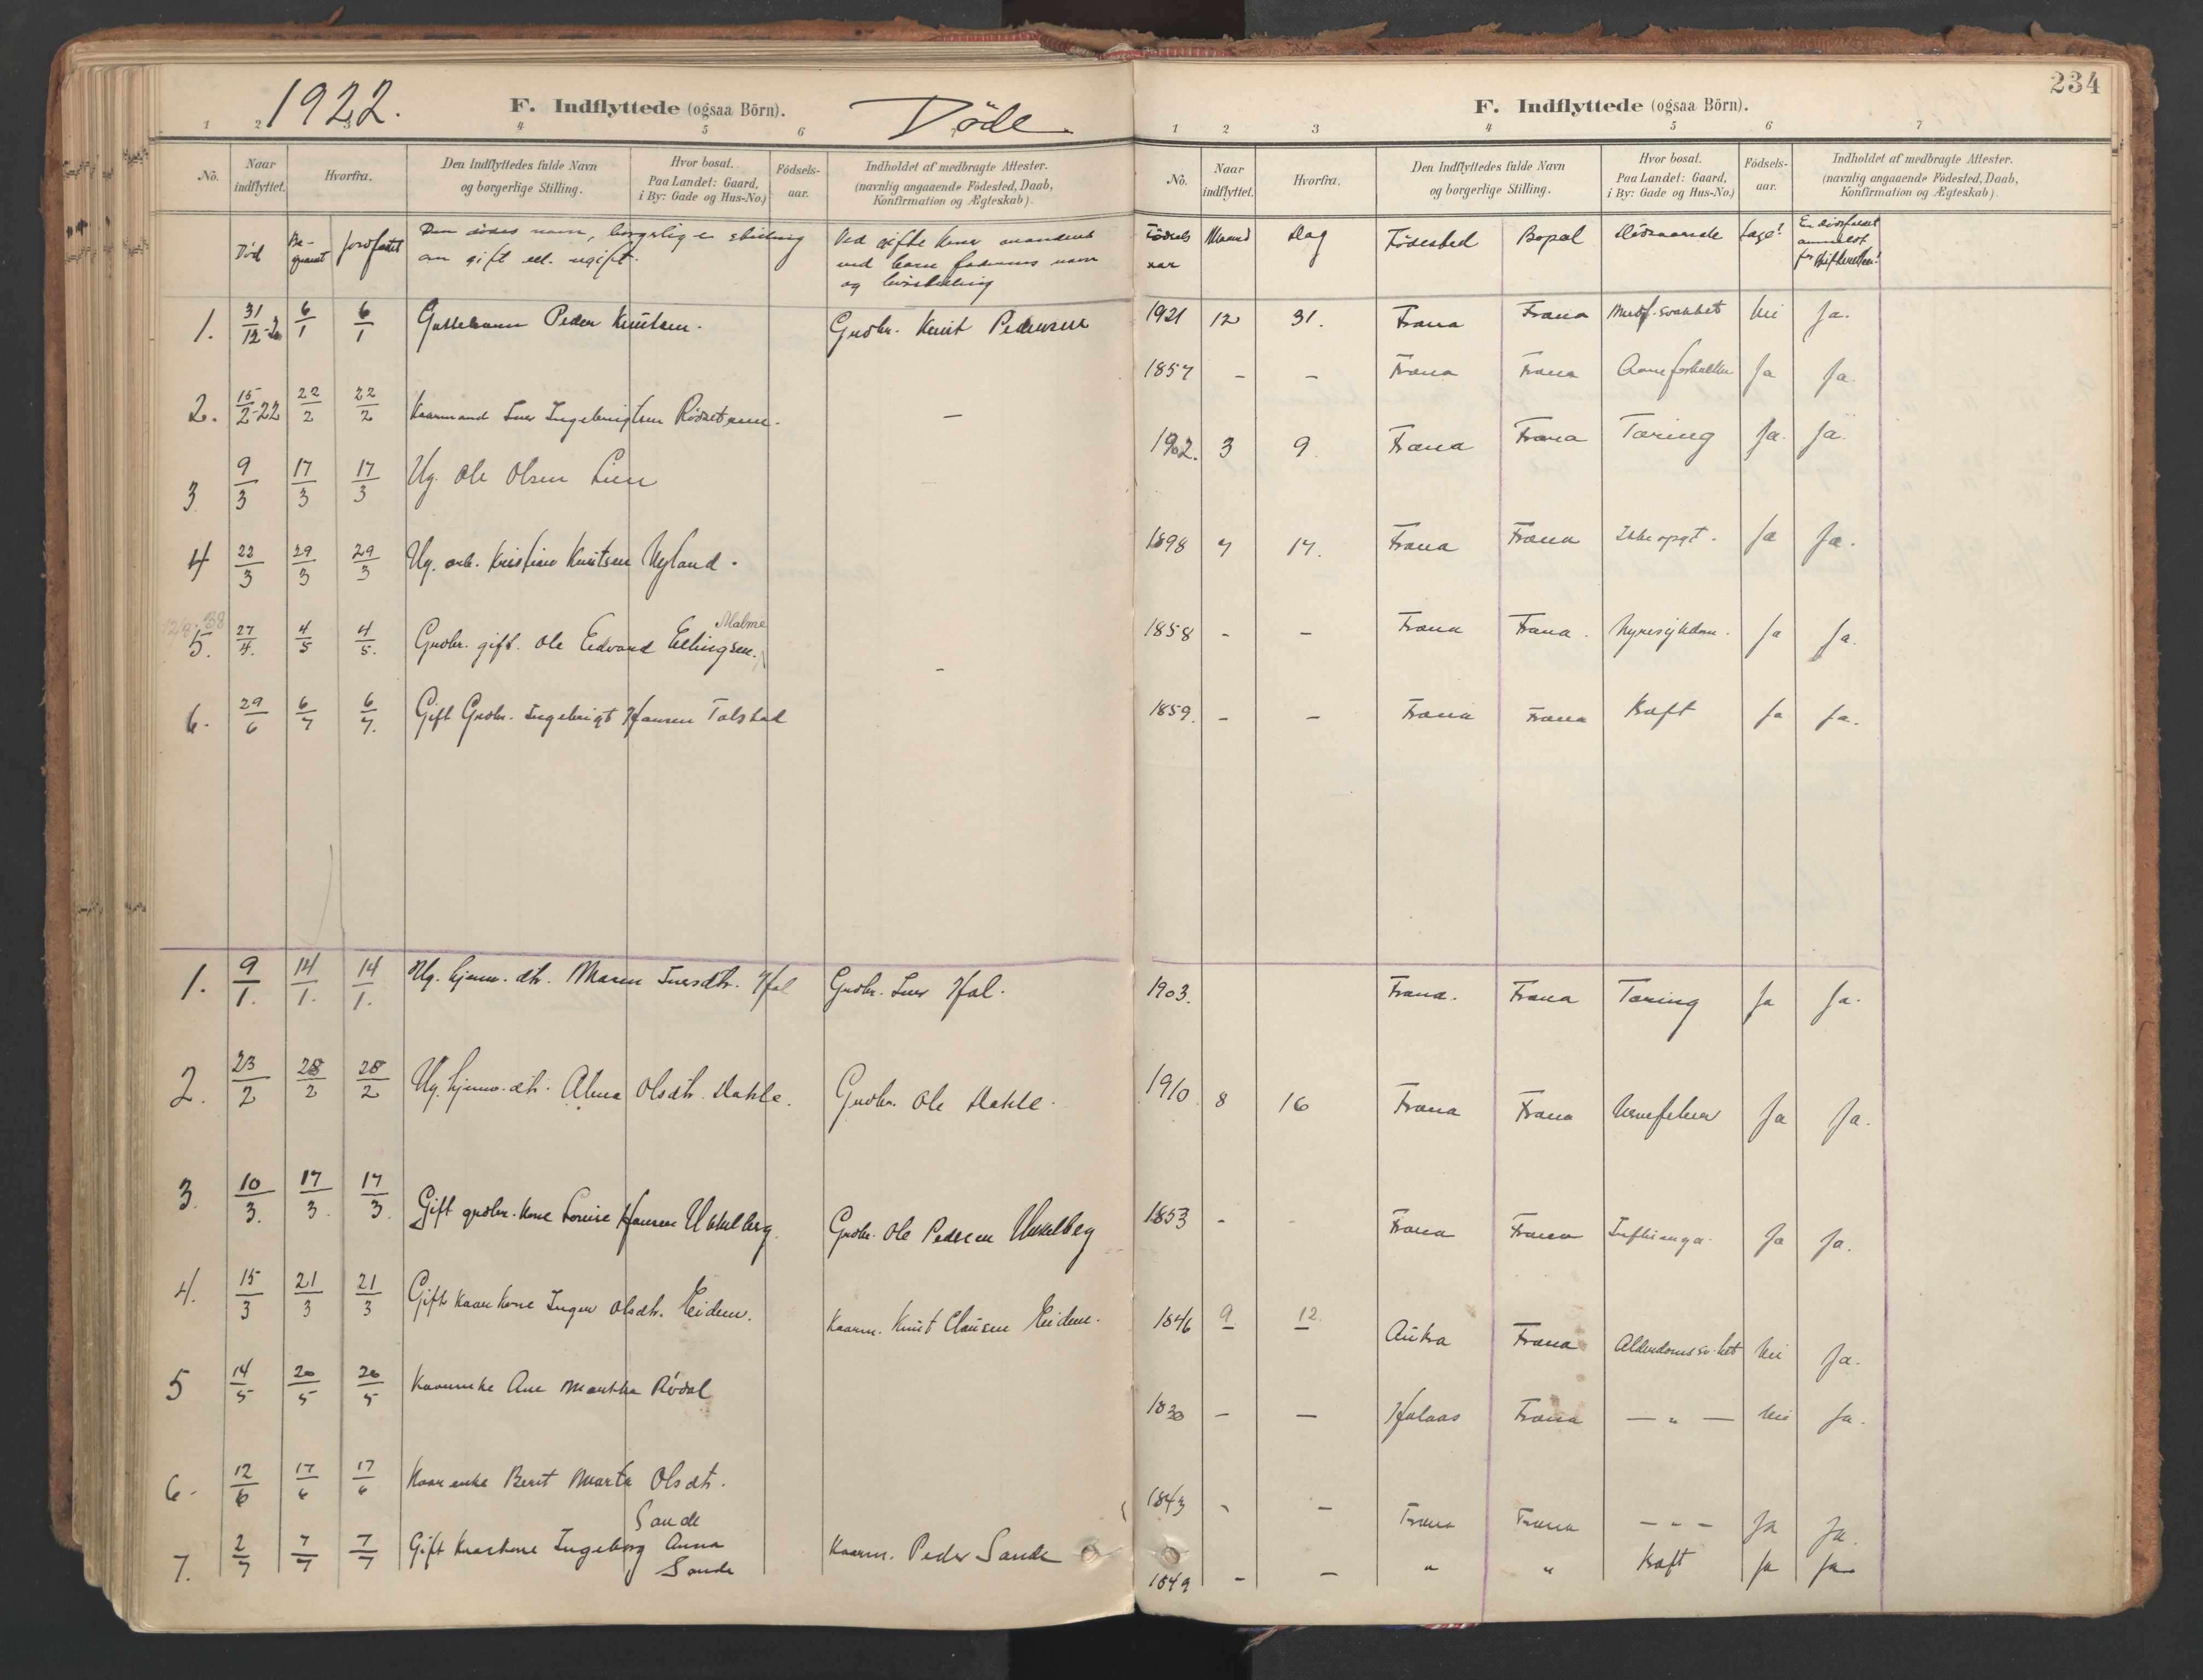 1922.
F. Indflyttede (ogsaa Börn).
Döde.
1 2 3 4 5 6
No.
Naar indflyttet.
Hvorfra.
Den Indflyttedes fulde Navn og borgerlige Stilling.
Hvor bosat. Paa Landet: Gaard, i By: Gade og Hus-No.)
Födsels-aar.
Indholdet af medbragte Attester. (navnlig angaaende Födested, Daab, Konfirmation og Ægteskab).
Död
Be-gravet
jordfæstet
Den dödes navn, borgerlige stilling
om gift ell. ugift.
Ved gifte koner mandens
ved barn faderens navn
og livsstilling
1. 31/12-21 6/1 6/1 Guttebarn Peder Knutsen. Grdbr. Knut Pedersen
2. 15/2-22 22/2 22/2 Kaarmand Iver Ingebrigtsen Rödset —
3 9/3 17/3 17/3 Ug. Ole Olsen Lien
4 22/3 29/3 29/3 Ug. arb. Kristian Knutsen Nyland.
12/9-38
Malme
5. 27/4. 4/5 4/5. Grdbr. gift. Ole Edvard Ellingsen. -
6. 29/6 6/7 6/7. Gift Grdbr. Ingebrigt Hansen Tolstad
1. 9/1. 14/1. 14/1. Ug. hjem. dtr. Maren Iversdtr. Hol Grdbr. Iver Hol.
2. 23/2 28/2 28/2 Ug. hjemv. dtr. Alma Olsdtr. Dahle. Grdbr. Ole Dahle.
3. 10/3. 17/3. 17/3. Gift grdbr. kone Louise Hansen Ukkelberg. Grdbr. Ole Pedersen Ukkelberg
4. 15/3 21/3 21/3 Gift kaarkone Inger Olsdtr. Eidem. Kaarm. Knut Clausen Eidem.
5 14/5 20/5 20/5 Kaarenke Ane Martha Rödal
6. 12/6 17/6 17/6 Kaarenke Berit Marta Olsdtr.
Sande
7. 2/7 7/7 7/7 Gift Kaarkone Ingeborg Anna
Sande
Kaarm. Peder Sande
234
F. Indflyttede (ogsaa Börn).
1 2 3 4 5 6 7
No.
Naar indflyttet.
Hvorfra.
Den Indflyttedes fulde Navn og borgerlige Stilling.
Hvor bosat. Paa Landet: Gaard, i By: Gade og Hus-No.)
Födsels-aar.
Indholdet af medbragte Attester. (navnlig angaaende Födested, Daab, Konfirmation og Ægteskab).
Födsels aar
Maaned
Dag
Födested
Bopæl
Dödsaarsak
Læge?
Er dödsfaldet anmeldt for skifteretten?
1921 12 31. Fræna Fræna Medf. svakhet Nei Ja.
1857 - - Fræna Fræna Aareforkalkn Ja Ja.
1902. 3 9. Fræna Fræna Tæring Ja. Ja.
1898 7 17. Fræna Fræna Ikke opgt. Ja Ja.
1858 - - Fræna Fræna. Nyresykdom. Ja Ja.
1859. - - Fræna Fræna Kræft Ja Ja.
1903. Fræna. Fræna Tæring Ja Ja.
1910. 8 16 Fræna Fræna Nervefeber Ja Ja.
1853 - - Fræna Fræna Influenza. Ja Ja.
1846 9 12. Aukra Fræna Alderdomssv.het Nei Ja.
1830 - - Fræna — " — Nei Ja.
1843 - - Fræna Fræna - " - Ja Ja.
1849 - - " " Kræft Ja Ja